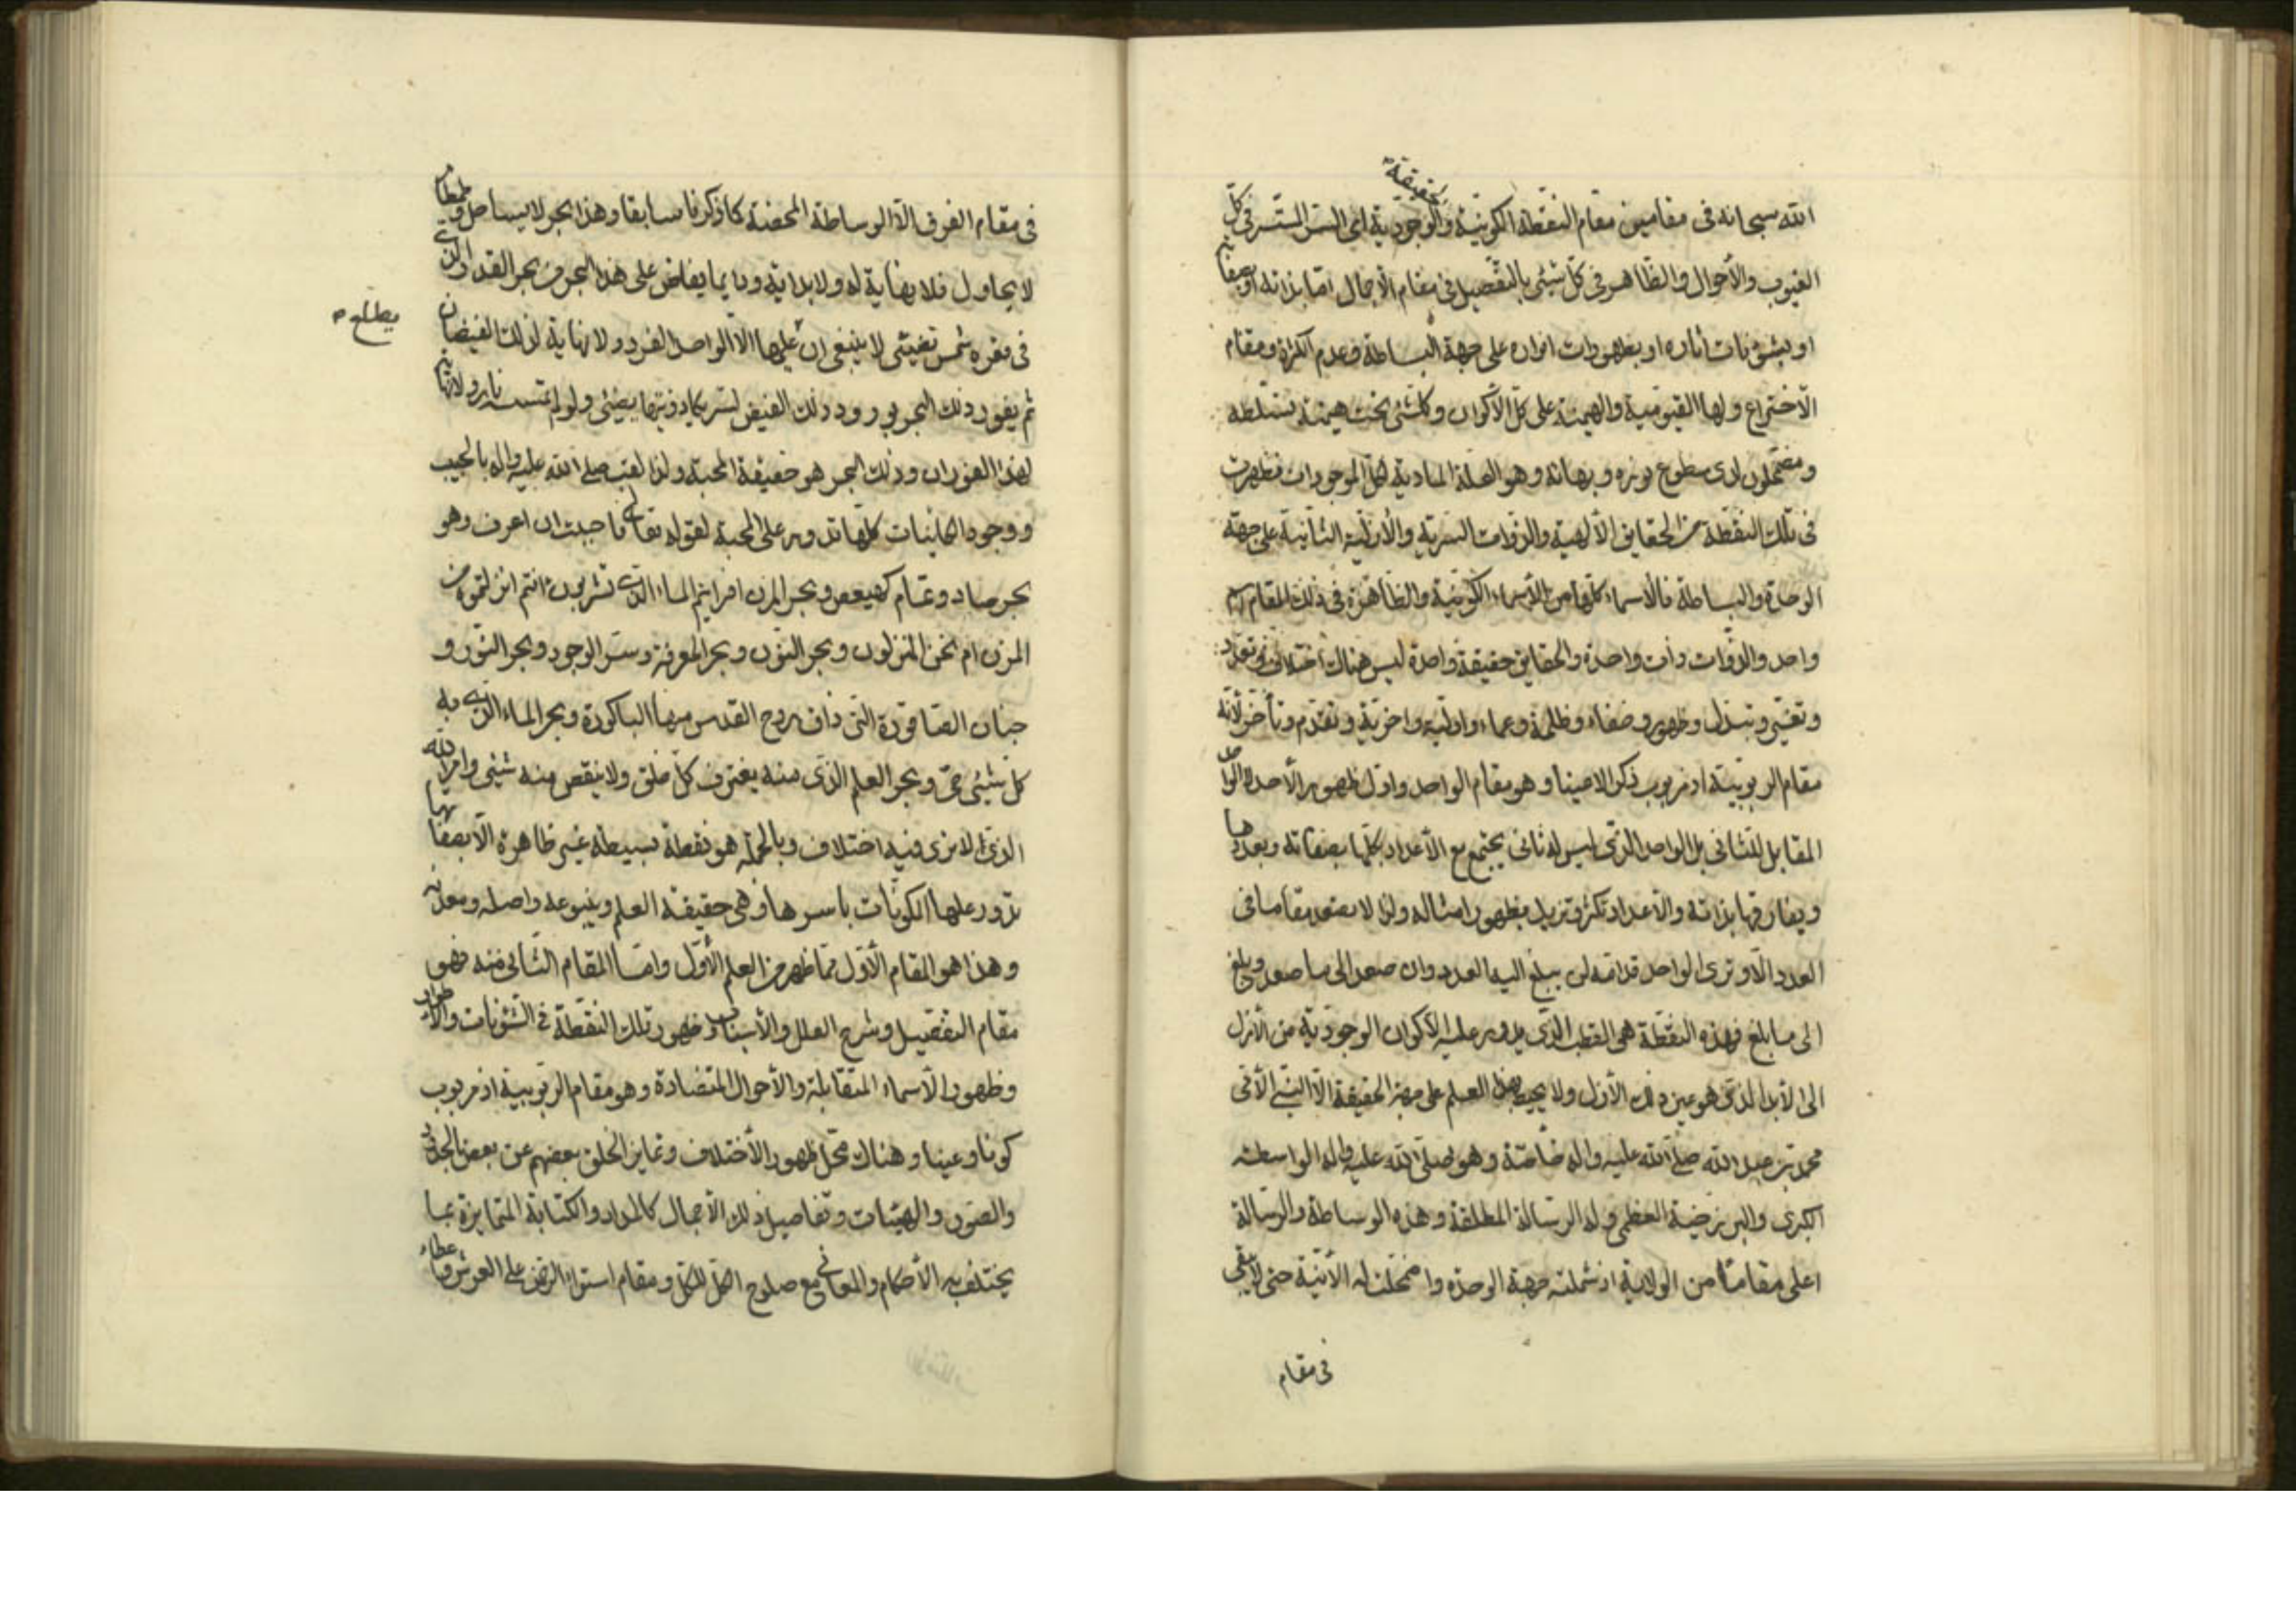 الله سبحانه في مقامين مقام النقطة الكونية والحقيقة الوجودية اي السر المستسر في كل
الغيوب والأحوال والظاهر في كل شيئ بالتفصيل في مقام الأجمال اما بذاته او بصفاته
او بشؤنات اثاره او بظهورات انواره على جهة البساطة وعدم الكثرة ومقام
الأختراع ولها القيومية والهيمنة على كل الأكوان وكلشئ تحت هيمنة تسلطه
ومضمحلون لدى سطوع نوره وبرهانه وهو العلة المادية لكل الموجودات فظهرت
في تلك النقطة من الحقايق الألهية والذوات السرية والأزلية الثانية على جهة
الوحدة والبساطة فالأسماء كلها من الأسماء الكونية والظاهرة في ذلك المقام اسم
واحد والذوات ذات واحدة والحقايق حقيقة واحدة ليس هناك اختلاف وتعدد
وتغيير وتبدل وظهور وصفاء وظلمة وعماء واولية واخرية وتقدم وتأخر لأنه
مقام الربوبية اذ مربوب ذكرا لا عينا وهو مقام الواحد واول ظهور الأحد لا الواحد
المقابل للثاني بل الواحد الذي ليس له ثاني يجتمع مع الأعداد بكلها بصفاته وبعددها
ويفارقها بذاته والأعداد تكثر وتزيل بظهور امثاله ولذا لا يصعد مقاما في
العدد الا وترى الواحد قدامه لن يبلغ اليه العدد وان صعد الى ما صعد وبلغ
الى ما بلغ فهذه النقطة هي القطب الذي يدور عليه الأكوان الوجودية من الأزل
الى الأبد الذي هو عين ذلك الأزل ولا يحيط بهذا العلم على جهة الحقيقة الا النبي الأمي
محمد بن عبد الله صلى الله عليه واله خاصة وهو صلى الله عليه واله الواسطة
الكبرى والبرزخية العظمى وله الرسالة المطلقة وهذه الوساطة والرسالة
اعلى مقاما من الولاية اذ شملته جهة الوحدة واضمحلت له الأنية حتى لا يبقى
في مقام
في مقام الفرق الا الوساطة المحضة كما ذكرنا سابقا وهذا بحر لا يساحل وطمطام
لا يحاول فلا نهاية له ولا بداية ودايما يفاض على هذا البحر من بحر القدر الذي
في قعره شمس تضيئ لا ينبغي ان عليها الا الواحد الفرد ولا نهاية لذلك الفيضان
يطلع
ثم يفور ذلك البحر بورود ذلك الفيض لسر يكاد زيتها يضئ ولو لم تمسسه نار ولا نهاية
لهذا الفوران وذلك البحر هو حقيقة المحبة ولذا لقب صلى الله عليه واله بالحبيب
ووجود الكاينات كلها تدور على المحبة لقوله تعالى فاحببت ان اعرف وهو
بحر صاد وتمام كهيعص وبحر المزن افرايتم الماء الذي تشربون ءانتم انزلتموه من
المزن ام نحن المنزلون وبحر النون وبحر المعرفة وسر الوجود وبحر النور و
جنان الصاقورة التي ذاق روح القدس منها الباكورة وبحر الماء الذي به
كل شيئ حي وبحر العلم الذي منه يغترف كل خلق ولا ينقص منه شيئ وامر الله
الذي لا ترى فيه اختلاف وبالجملة هو نقطة بسيطة غير ظاهرة الا بصفاتها
تدور عليها الكونات باسرها وهي حقيقة العلم وينبوعه واصله ومعدنه
وهذا هو المقام الأول مما ظهر من العلم الأول واما المقام الثاني منه فهو
مقام التفصيل وشرح العلل والأسباب وظهور تلك النقطة في الشئونات والأطوار
وظهور الأسماء المتقابلة والأحوال المتضادة وهو مقام الربوبية اذ مربوب
كونا وعينا وهناك محل ظهور الأختلاف وتمايز الخلق بعضهم عن بعض بالحدود
والصور والهيئات وتفاصيل ذلك الأجمال كالمداد والكتابة المتمايزة بما
يختلف به الأحكام والمعاني مع صلوح الكل للكل ومقام استواء الرحمن على العرش